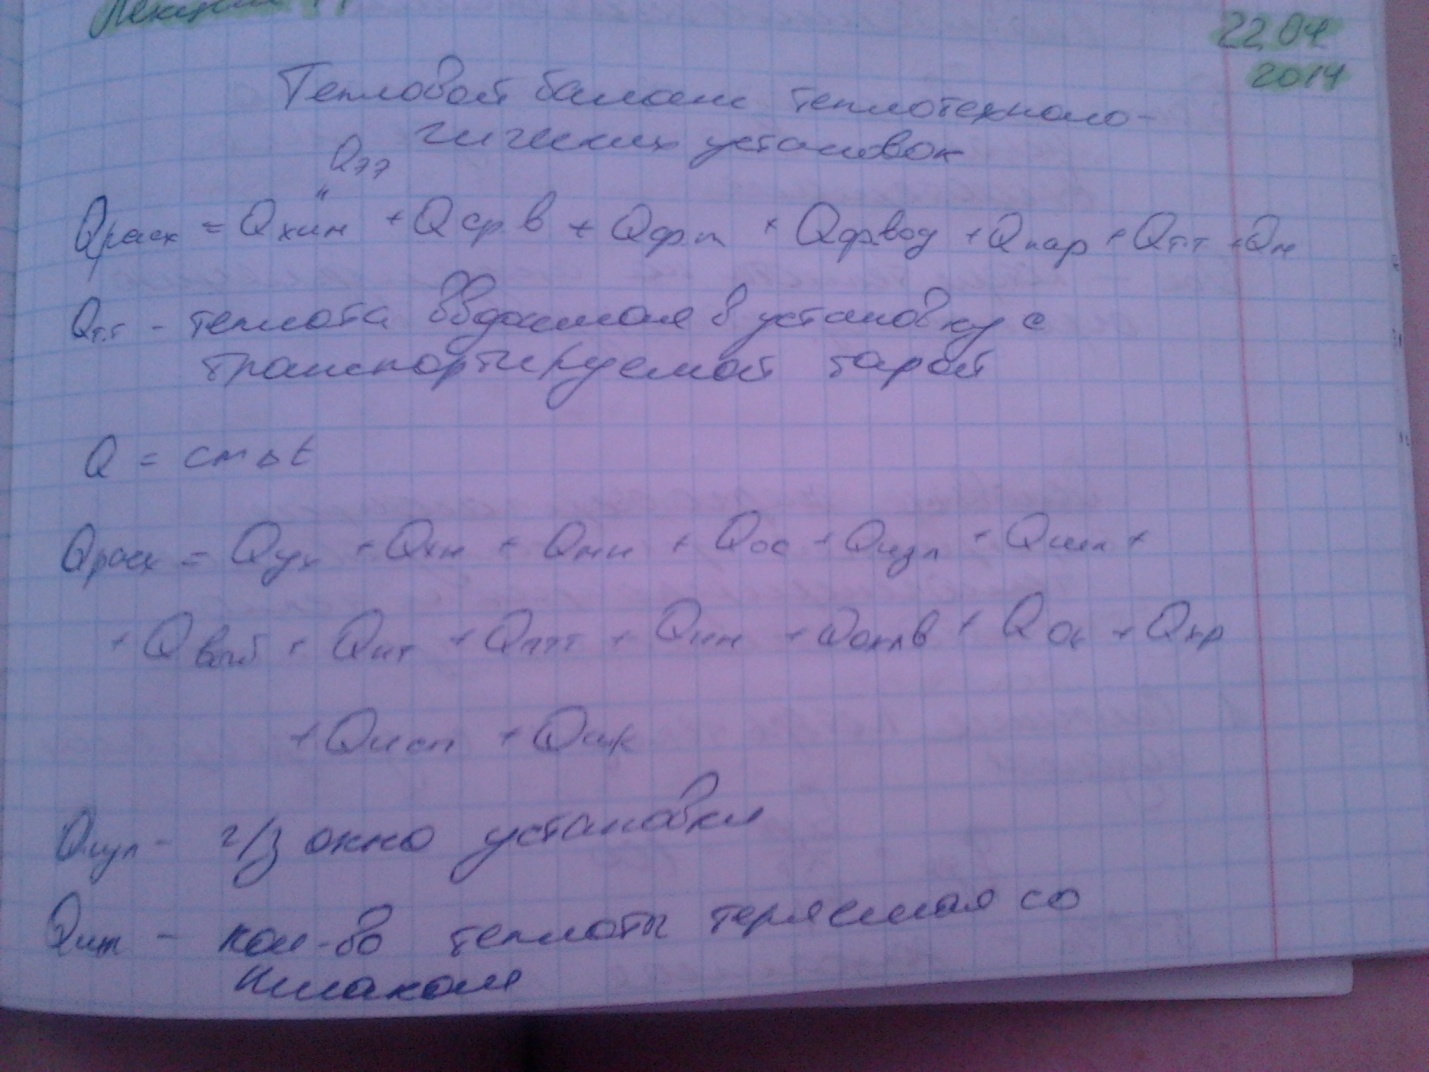 Лекция
22.04
2014
Тепловой баланс теплотехноло-
гических установок
Qээ
"
Qрасх = Qхим + Qф в + Qф т + Qф вод + Qпар + Qт.т + Qн
Qт.т - теплота вводимая в установку с
транспортируемой тарой
Q = cmΔt
Qрасх = Qух + Qхн + Qмн + Qос + Qизл + Qшл +
+ Qвыб + + + + Qохл в + + 
+ Qисп + Qак
Qизл - ч/з окно установки
- кол-во теплоты теряемая со
шлаком